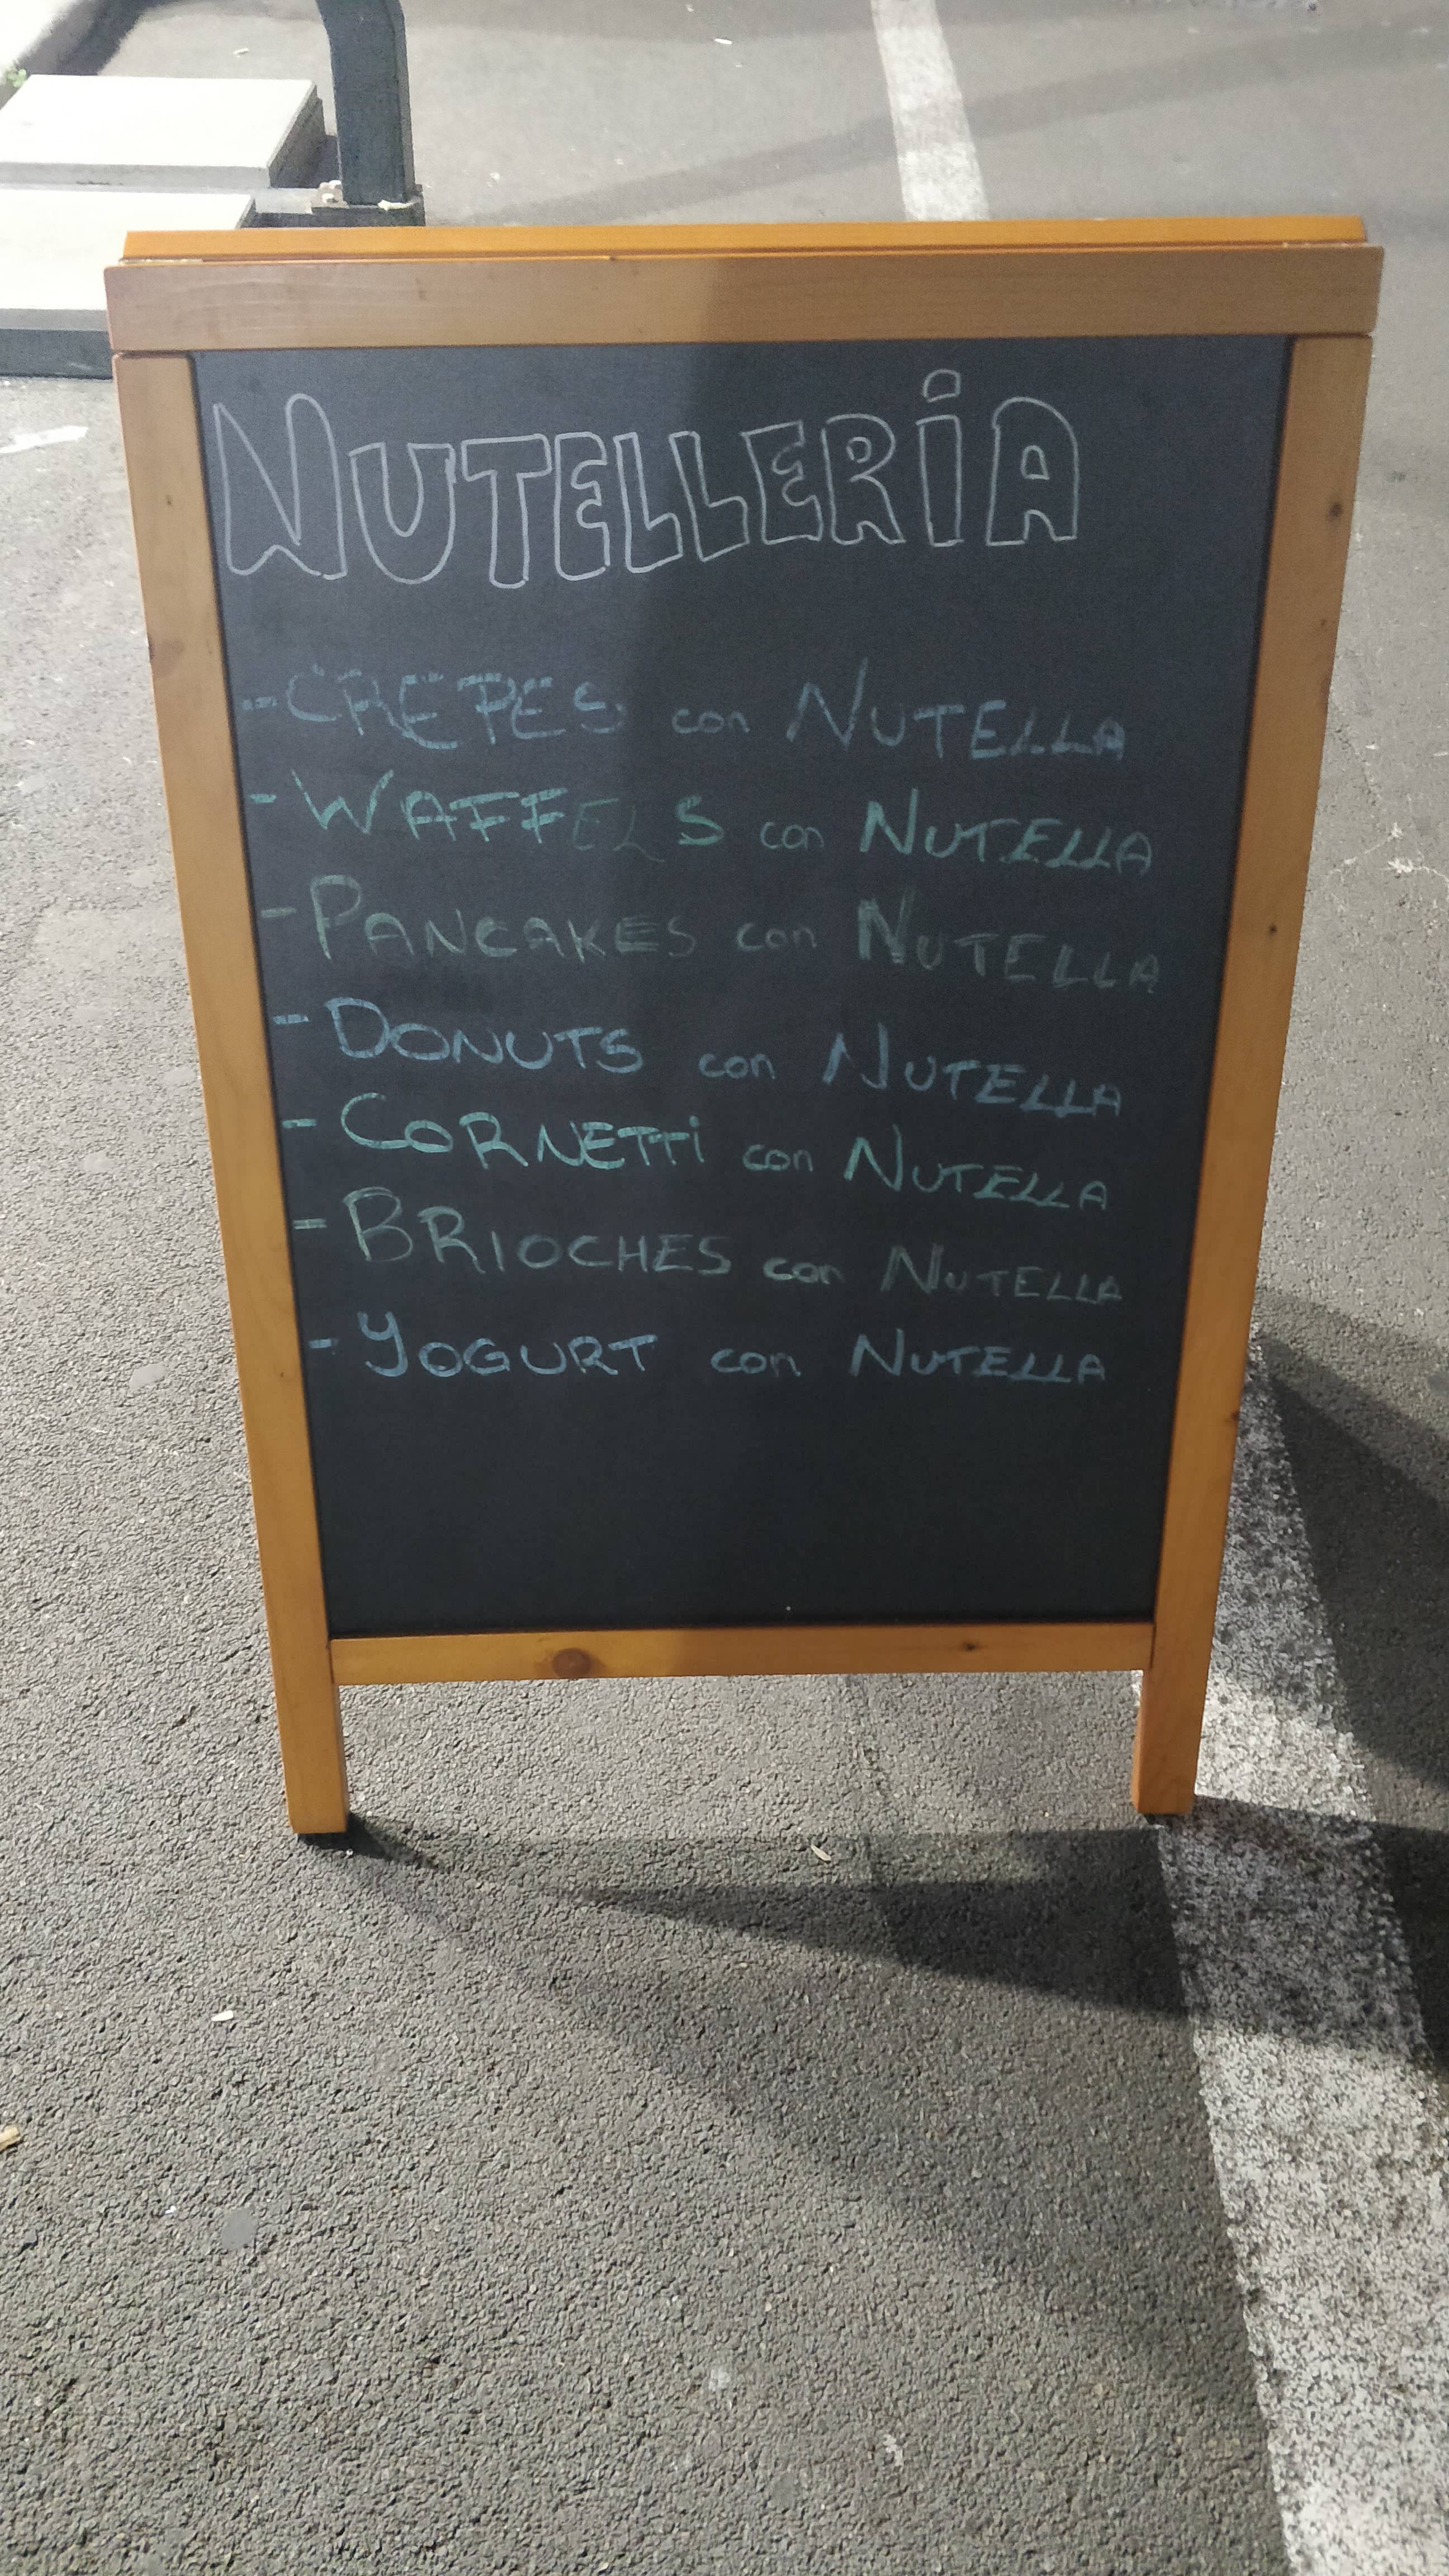 NUTELLERiA
- CREPES con NUTELLA
- WAFFELS con NUTELLA
- PANCAKES con NUTELLA
- DONUTS con NUTELLA
- CORNETTi con NUTELLA
- BRIOCHES con NUTELLA
- YOGURT con NUTELLA